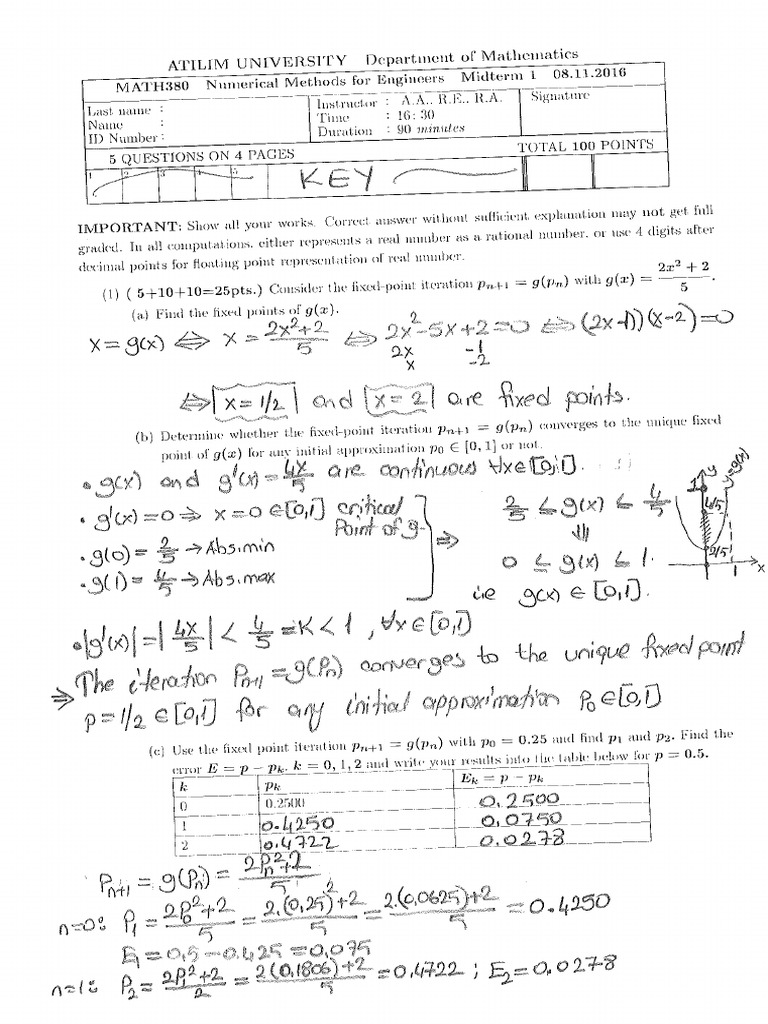 ATILIM UNIVERSITY Department of Mathematics
MATH380 Numerical Methods for Engineers Midterm 1 08.11.2016
Last name :
Name :
ID Number :
Instructor : A.A., R.E., R.A.
Time : 16:30
Duration : 90 minutes
Signature
5 QUESTIONS ON 4 PAGES
TOTAL 100 POINTS
1 2 3 4 5
KEY
IMPORTANT: Show all your works. Correct answer without sufficient explanation may not get full
graded. In all computations, either represents a real number as a rational number, or use 4 digits after
decimal points for floating point representation of real number.
(1) ( 5+10+10=25pts.) Consider the fixed-point iteration pₙ₊₁ = g(pₙ) with g(x) = (2x² + 2)/5.
(a) Find the fixed points of g(x).
x = g(x) ⇔ x = (2x²+2)/5 ⇔ 2x²-5x+2=0 ⇔ (2x-1)(x-2)=0
2x -1
x -2
⇔ x = 1/2 and x = 2 are fixed points.
(b) Determine whether the fixed-point iteration pₙ₊₁ = g(pₙ) converges to the unique fixed
point of g(x) for any initial approximation p₀ ∈ [0, 1] or not.
• g(x) and g'(x) = 4x/5 are continuous ∀x∈[0,1].
• g'(x)=0 ⇒ x=0 ∈[0,1] critical
point of g.
• g(0) = 2/5 → Abs.min
• g(1) = 4/5 → Abs.max
⇒ 2/5 ≤ g(x) ≤ 4/5
⇓
0 ≤ g(x) ≤ 1.
i.e g(x) ∈ [0,1].
y
y=g(x)
1
4/5
2/5
1
x
• |g'(x)| = |4x/5| < 4/5 = K < 1 , ∀x∈[0,1]
⇒ The iteration Pₙ₊₁ = g(Pₙ) converges to the unique fixed point
p = 1/2 ∈ [0,1] for any initial approximation P₀∈[0,1]
(c) Use the fixed point iteration pₙ₊₁ = g(pₙ) with p₀ = 0.25 and find p₁ and p₂. Find the
error E = p − pₖ, k = 0, 1, 2 and write your results into the table below for p = 0.5.
k pₖ Eₖ = p − pₖ
0 0.2500 0.2500
1 0.4250 0.0750
2 0.4722 0.0278
Pₙ₊₁ = g(Pₙ) = (2Pₙ²+2)/5
n=0: P₁ = (2P₀²+2)/5 = (2.(0,25)²+2)/5 = (2.(0,0625)+2)/5 = 0.4250
E₁ = 0,5 - 0.425 = 0,075
n=1: P₂ = (2P₁²+2)/2 = (2(0,1806)+2)/5 = 0,4722 ; E₂ = 0,0278